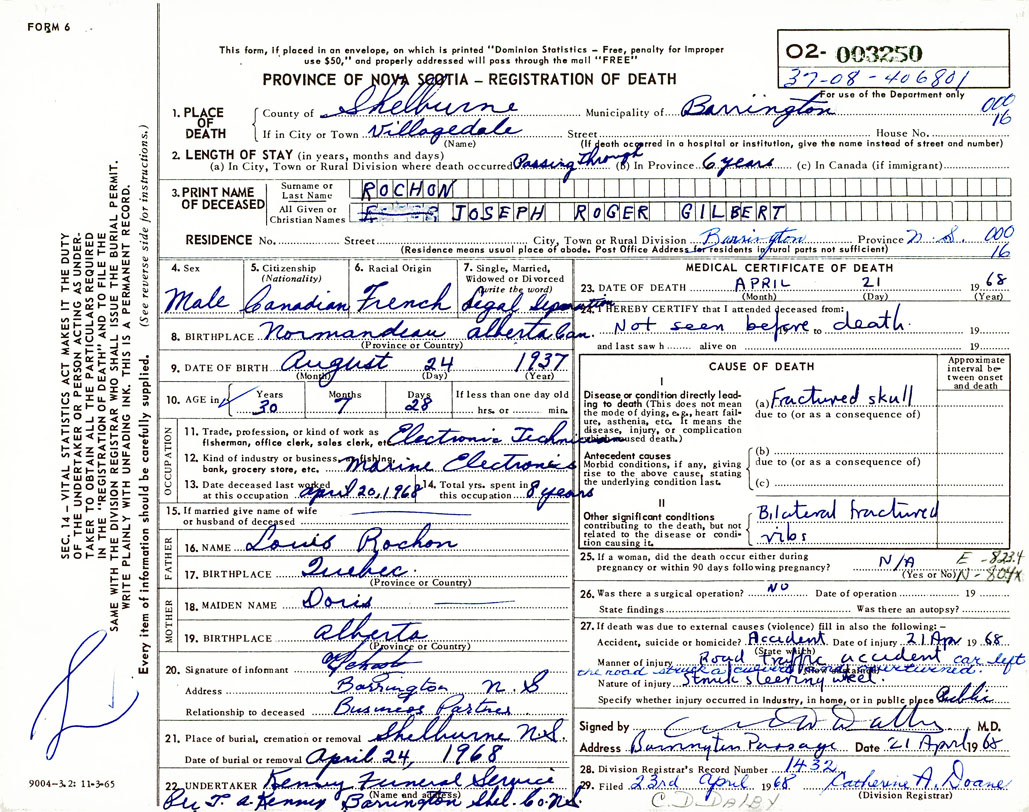 FORM 6
This form, if placed in an envelope, on which is printed "Dominion Statistics – Free, penalty for improper
use $50," and properly addressed will pass through the mail "FREE"
PROVINCE OF NOVA SCOTIA – REGISTRATION OF DEATH
O2- 003250
37-08-406801
For use of the Department only
000
16
SEC. 14 – VITAL STATISTICS ACT MAKES IT THE DUTY
OF THE UNDERTAKER OR PERSON ACTING AS UNDER-
TAKER TO OBTAIN ALL THE PARTICULARS REQUIRED
IN THE "REGISTRATION OF DEATH" AND TO FILE THE
SAME WITH THE DIVISION REGISTRAR WHO SHALL ISSUE THE BURIAL PERMIT.
WRITE PLAINLY WITH UNFADING INK. THIS IS A PERMANENT RECORD.
Every item of information should be carefully supplied. (See reverse side for instructions.)
1. PLACE OF DEATH
County of Shelburne Municipality of Barrington
If in City or Town Villagedale Street House No.
(Name) (If death occurred in a hospital or institution, give the name instead of street and number)
2. LENGTH OF STAY (in years, months and days)
(a) In City, Town or Rural Division where death occurred Passing through (b) In Province 6 years (c) In Canada (if immigrant)
3. PRINT NAME OF DECEASED
Surname or Last Name ROCHON
All Given or Christian Names JOSEPH ROGER GILBERT
RESIDENCE No. Street City, Town or Rural Division Barrington Province N.S. 000
16
(Residence means usual place of abode. Post Office Address for residents in rural parts not sufficient)
4. Sex Male
5. Citizenship (Nationality) Canadian
6. Racial Origin French
7. Single, Married, Widowed or Divorced (write the word) Legal Separation
8. BIRTHPLACE Normandeau Alberta Can.
(Province or Country)
9. DATE OF BIRTH August 24 1937
(Month) (Day) (Year)
10. AGE in Years 30 Months 7 Days 28 If less than one day old hrs. or min.
OCCUPATION
11. Trade, profession, or kind of work as fisherman, office clerk, sales clerk, etc. Electronic Technician
12. Kind of industry or business, as fishing, bank, grocery store, etc. Marine Electronics
13. Date deceased last worked at this occupation April 20, 1968 14. Total yrs. spent in this occupation 8 years
15. If married give name of wife or husband of deceased
FATHER
16. NAME Louis Rochon
17. BIRTHPLACE Quebec.
(Province or Country)
MOTHER
18. MAIDEN NAME Doris
19. BIRTHPLACE Alberta
(Province or Country)
20. Signature of informant
Address Barrington N.S
Relationship to deceased Business Partner
21. Place of burial, cremation or removal Shelburne N.S.
Date of burial or removal April 24, 1968
22. UNDERTAKER Kenny Funeral Service
(Name and address)
Per T. A. Kenney Barrington Shel. Co. N.S.
9004-3.2: 11-3-65
MEDICAL CERTIFICATE OF DEATH
23. DATE OF DEATH APRIL 21 1968
(Month) (Day) (Year)
24. I HEREBY CERTIFY that I attended deceased from:
Not seen before to death. 19
and last saw h alive on 19
CAUSE OF DEATH
Approximate interval between onset and death
I
Disease or condition directly leading to death (This does not mean the mode of dying, e.g., heart failure, asthenia, etc. It means the disease, injury, or complication which caused death.)
(a) Fractured skull
due to (or as a consequence of)
Antecedent causes
Morbid conditions, if any, giving rise to the above cause, stating the underlying condition last.
(b)
due to (or as a consequence of)
(c)
II
Other significant conditions contributing to the death, but not related to the disease or condition causing it.
Bilateral fractured
ribs
25. If a woman, did the death occur either during pregnancy or within 90 days following pregnancy? N/A
(Yes or No)
E-823.4
N-804x
26. Was there a surgical operation? NO Date of operation 19
State findings Was there an autopsy?
27. If death was due to external causes (violence) fill in also the following:–
Accident, suicide or homicide? Accident. Date of injury 21 Apr 1968
(State which)
Manner of injury Road traffic accident car left
the road struck a culvert and overturned.
Nature of injury Struck steering wheel.
Specify whether injury occurred in Industry, in home, or in public place Public
Signed by M.D.
Address Barrington Passage Date 21 April 1968
28. Division Registrar's Record Number 1432
29. Filed 23rd April 1968 Catherine A. Doane
(Division Registrar)
C.D. DALBY